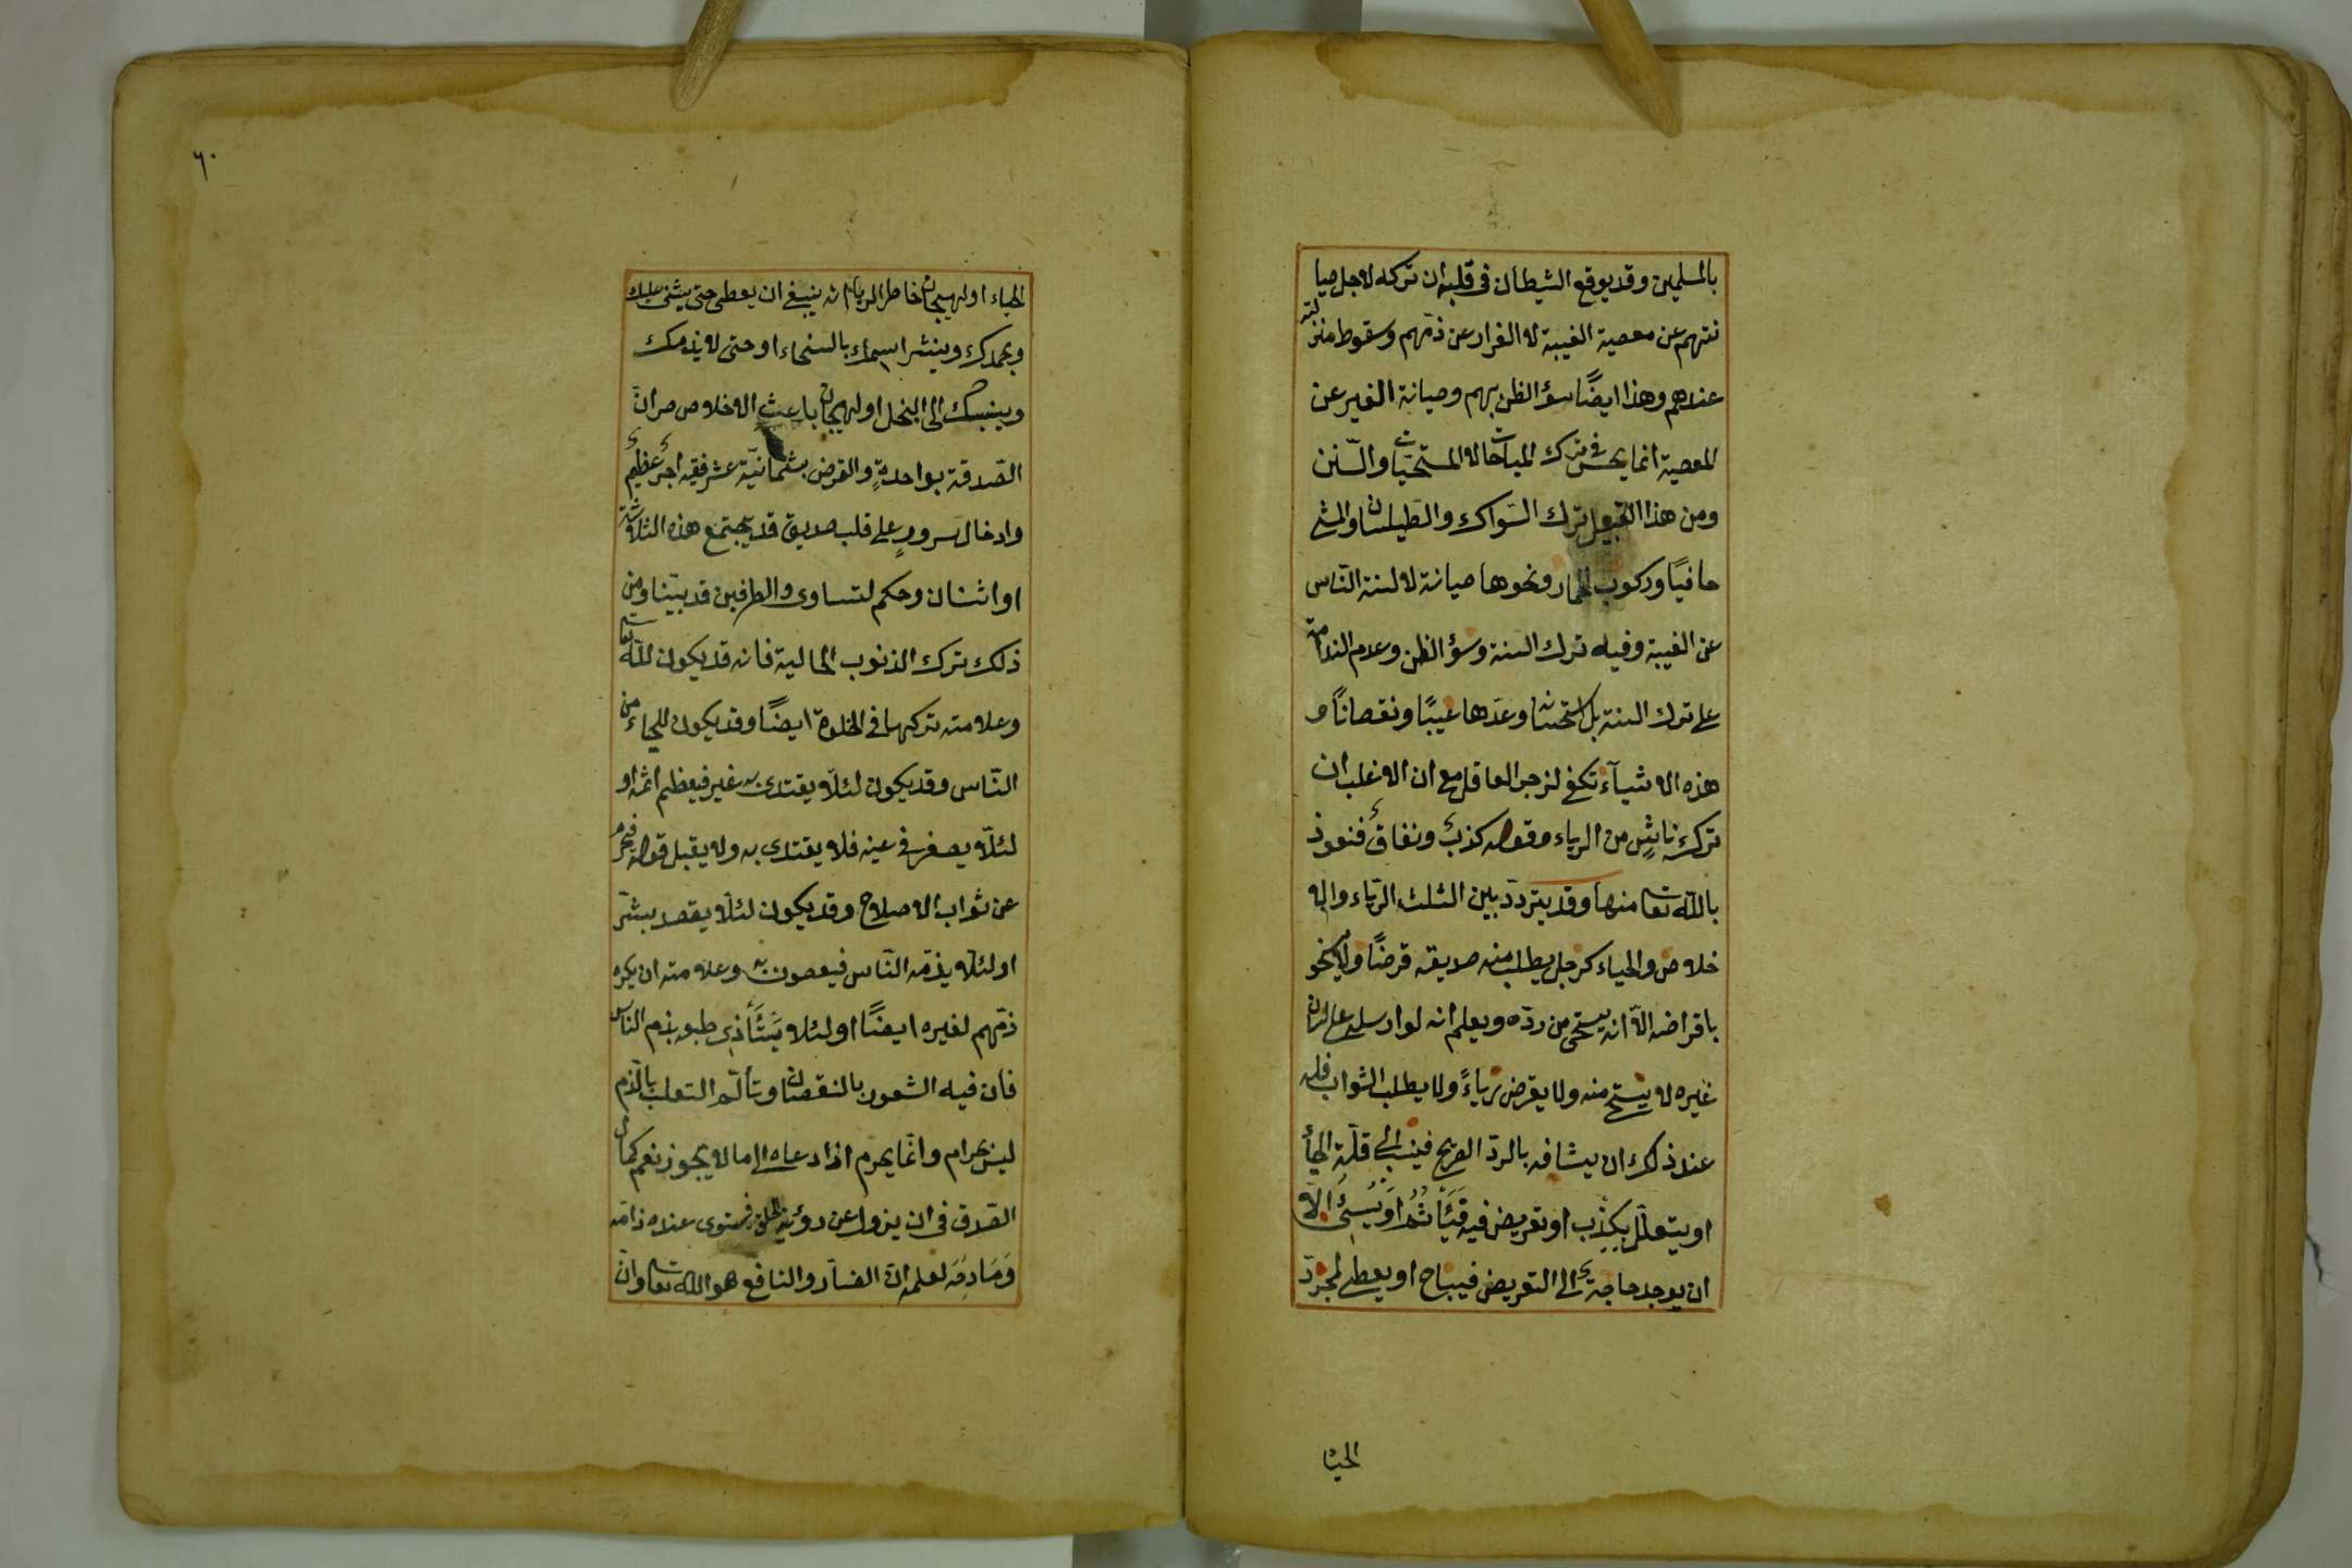 بالمسلمين وقد يوقع الشيطان فى قلبه ان تركه لاجل صيا
نتهم عن معصية الغيبة لا الفرار عن ذمّهم وسقوط منزلته
عندهم وهذا ايضًا سؤ الظن بهم وصيانة الغير عن
المعصية انما يحسن فى ترك المباحات لا المستحبّات والسّنن
ومن هذا القبيل ترك السّواك والطّيلسان والمشى
حافيًا وركوب الحمار ونحوها صيانة لالسنة النّاس
عن الغيبة وفيه ترك السنة وسؤ الظن وعدم الندامة
على ترك السنة بل استحسانه وعدّها عيبًا ونقصانًا و
هذه الاشيآء تكفى لزجر العاقل مع ان الاغلب ان
تركه ناشٍ من الرياء وقوله كذبٌ ونفاقٌ فنعوذ
باللّه تعا منها وقد يتردّد بين الثلث الرّياء والا
خلاص والحياء كرجل يطلب منه صديقه قرضًا ولا يسخو
باقراضه الّا انه يستحى من ردّه ويعلم انه لو ارسله على لسان
غيره لا يستحى منه ولا يقرض رياءً ولا يطلب الثواب فله
عند ذلك ان يشافه بالردّ الصريح فينسب الى قلّة الحيأ
او يتعلّل بكذب او تعريض فيأثم او يسئ الّا
ان يوجد حاجة الى التعريض فيباح او يعطى لمجرّد
الحيا
٦٠
الحياء او لهيجان خاطر الرياء انه ينبغى ان يعطى حتى يثنى عليك
ويحمدك وينشر اسمك بالسخاء او حتى لا يذمك
وينسبك الى البخل او لهيجان باعث الاخلاص من انّ
الصّدقة بواحدةٍ والقرض بثمانيّة عشر ففيه اجرٌ عظيمٌ
وادخال سرورٍ على قلب صديق قد يجتمع هذه الثلاثة
او اثنان وحكم لتساوى والطرفين قد بيّنا ومن
ذلك ترك الذنوب الحالية فانه قد يكون للّه تعا
وعلامته تركها فى الخلوة ايضًا وقد يكون للحياء من
النّاس وقد يكون لئلّا يقتدى به غير فيعظم اثمه او
لئلّا يصغر فى عينه فلا يقتدى به ولا يقبل قوله فيحرم
عن ثواب الاصلاح وقد يكون لئلّا يقصد بشرّ
او لئلّا يذمّه النّاس فيعصون به وعلامته ان يكره
ذمّهم لغيره ايضًا او لئلا يتأذى طبعه بذم الناس
فان فيه الشعور بالنقصان وتألّم القلب بالذم
ليس بحرام وانّما يحرم اذا دعاه الى ما لا يجوز نعم كمال
الصّدق فى ان يزول عن رؤية الخلق فيستوى عنده ذامّه
ومَادِحَه لعلمه انّ الضآر والنافع هو اللّه تعا وانّ